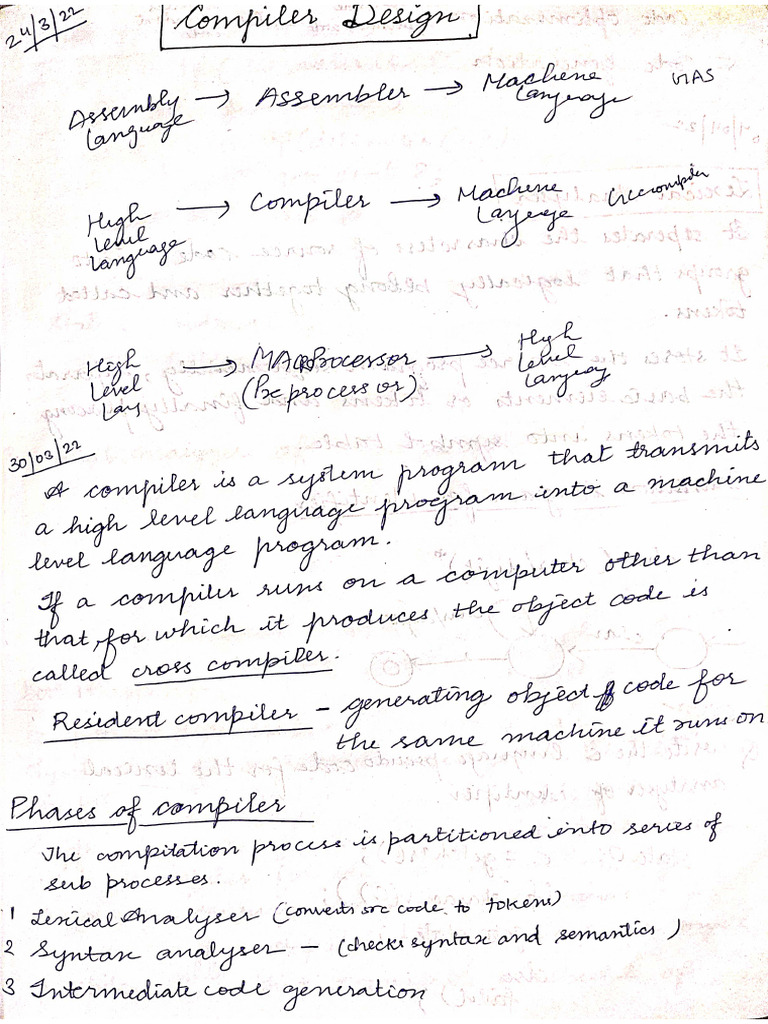 24/3/22
Compiler Design
Assembly Language → Assembler → Machene Language
High Level Language → Compiler → Machene Layerge
High Level Lay → MACROProcessor (Preprocessor) → High Level Langyag
30/03/22
A compiler is a system program that transmits
a high level language program into a machine
level language program.
If a compiler runs on a computer other than
that, for which it produces the object code is
called cross compiler.
Resident compiler - generating object code for
the same machine it runs on
Phases of compiler
The compilation process is partitioned into series of
sub processes.
1 Lexical Analyser (converts src code to tokens)
2 Syntax analyser - (checks syntax and semantics)
3 Intermediate code generation